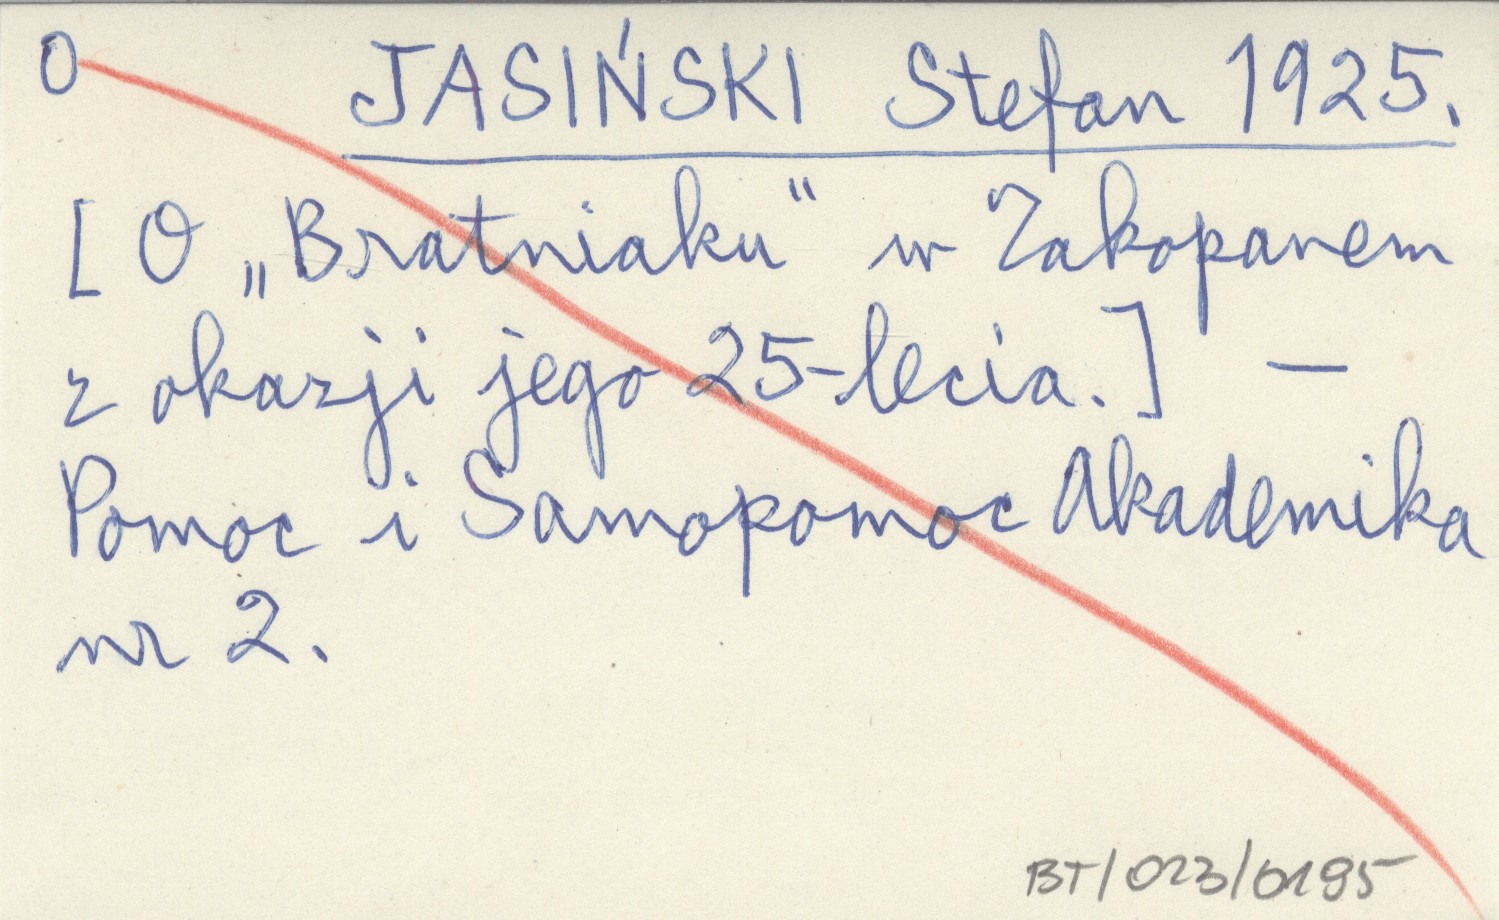 O JASIŃSKI Stefan 1925.
[ O „Bratniaku“ w Zakopanem
z okazji jego 25-lecia. ] —
Pomoc i Samopomoc Akademika
nr 2.
BT/023/0195